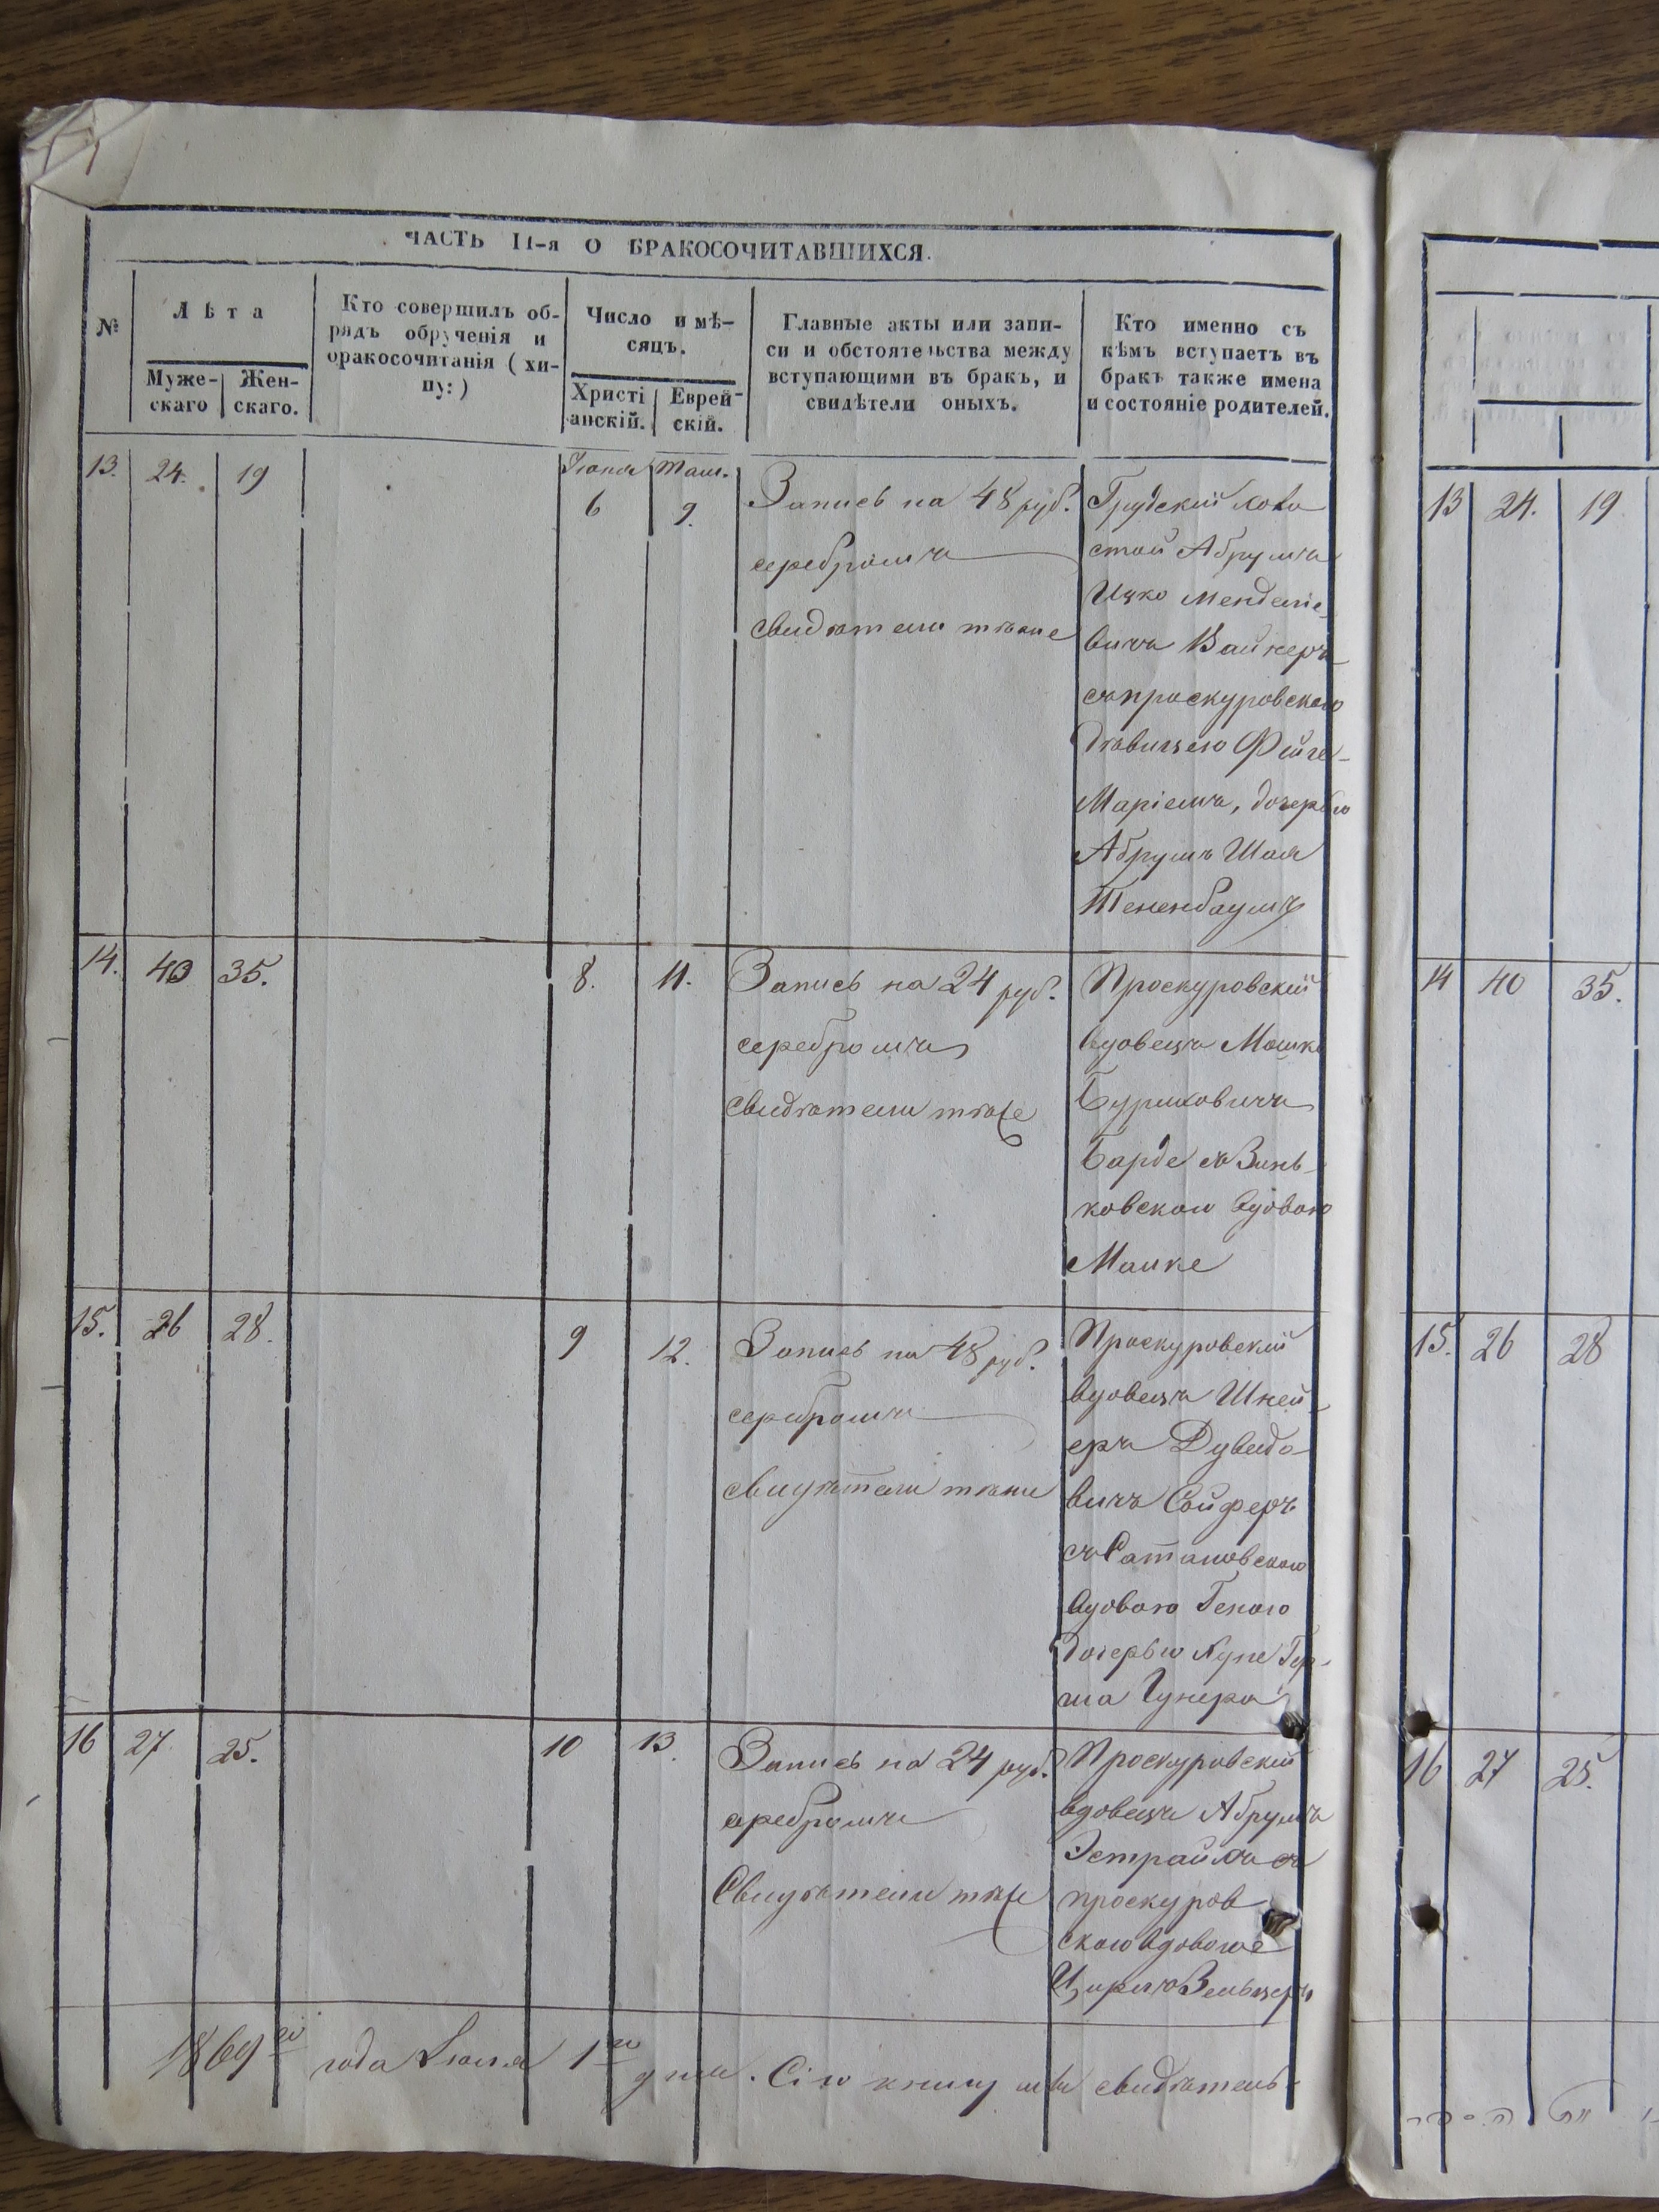 ЧАСТЬ II-я О БРАКОСОЧИТАВШИХСЯ.
№
Лѣта
Муже-
скаго
Жен-
скаго.
Кто совершилъ об-
рядъ обрученія и
бракосочитанія (хи-
пу:)
Число и мѣ-
сяцъ.
Христі
анскій.
Еврей-
скій.
Главные акты или запи-
си и обстоятельства между
вступающими въ бракъ, и
свидѣтели оныхъ.
Кто именно съ
кѣмъ вступаетъ въ
бракъ также имена
и состояніе родителей.
13.
24.
19
Іюня
6
Там.
9.
Запись на 48 руб.
серебромъ
свидѣтели тѣже
Грудскій холо
стой Абрумъ
Ицко Менделіе
вичъ Вайнеръ
съ проскуровскою
дѣвицею Фейге-
Маріемъ, дочерью
Абрумъ Шая
Тененбаумъ
14.
40
35.
8.
11.
Запись на 24 руб.
серебромъ
свидѣтели тѣже
Проскуровскій
вдовецъ Мошко
Буриховичъ
Барде съ Зинь-
ковскою вдовою
15.
26
28.
9
12.
Запись на 48 руб.
серебромъ
свидѣтели тѣже
Проскуровскій
вдовецъ Шней
еръ Дувидо
вичъ Сойферъ
съ Сатановскою
вдовою Генею
дочерью
16
27
25.
10
13.
Запись на 24 руб.
серебромъ
Свидѣтели тѣже
Проскуровскій
вдовецъ Абрумъ
Эстрайхъ съ
проскуров
скою вдовою
Цирлю Зельцеръ
1869го года Іюля 1го дня. Сію книгу мы свидѣтель-
13
24.
19
14
40
35.
15.
26
28
16
27
25.